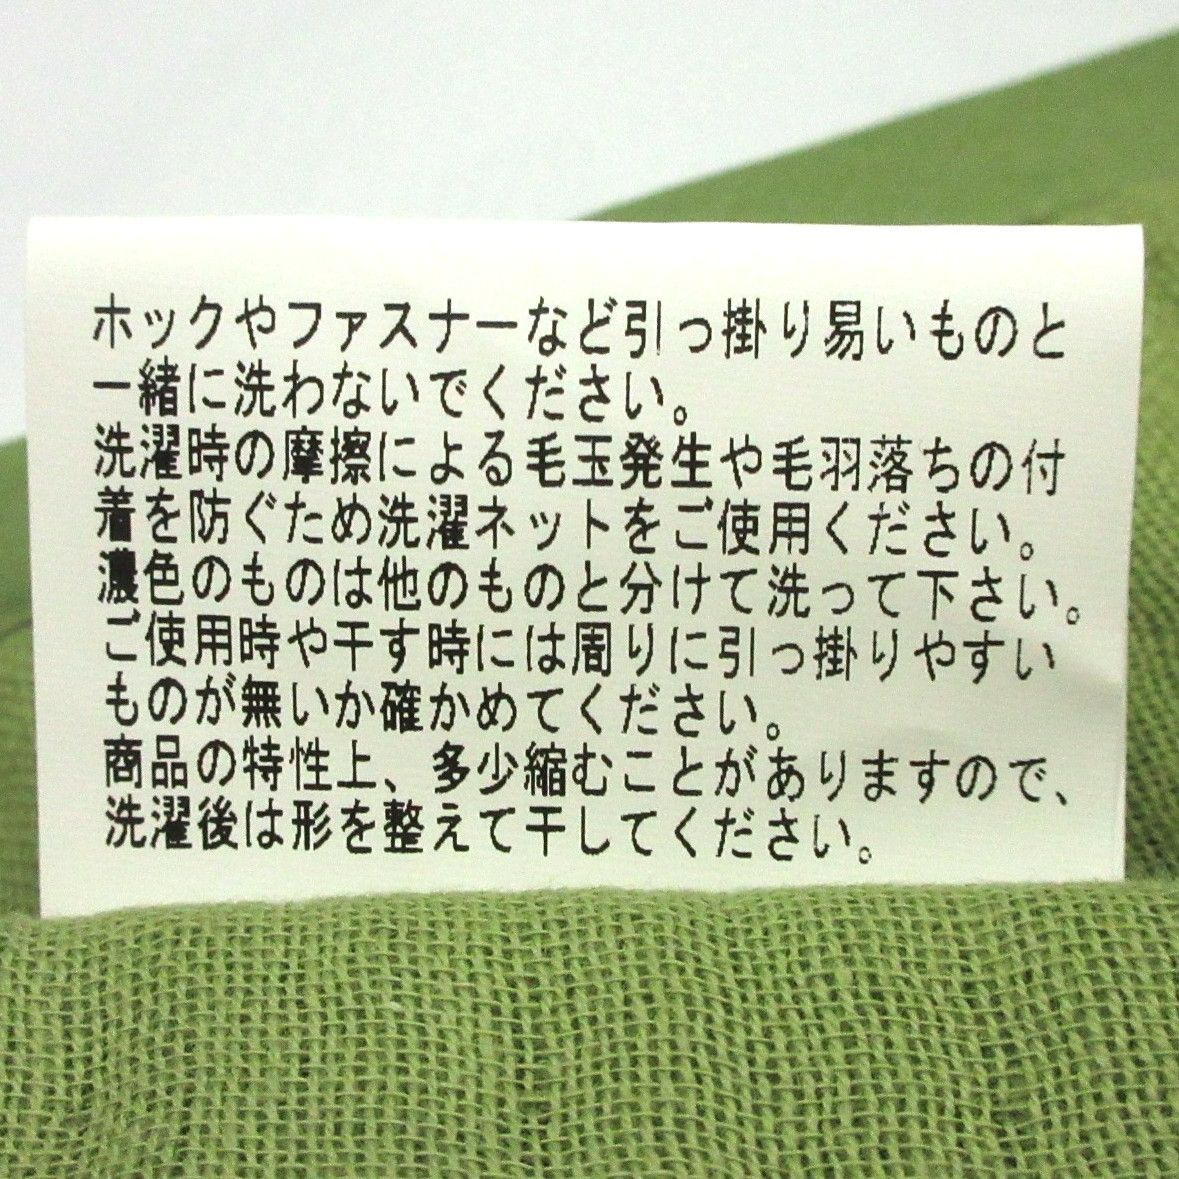 ホックやファスナーなど引っ掛り易いものと
一緒に洗わないでください。
洗濯時の摩擦による毛玉発生や毛羽落ちの付
着を防ぐため洗濯ネットをご使用ください。
濃色のものは他のものと分けて洗って下さい。
ご使用時や干す時には周りに引っ掛りやすい
ものが無いか確かめてください。
商品の特性上、多少縮むことがありますので、
洗濯後は形を整えて干してください。